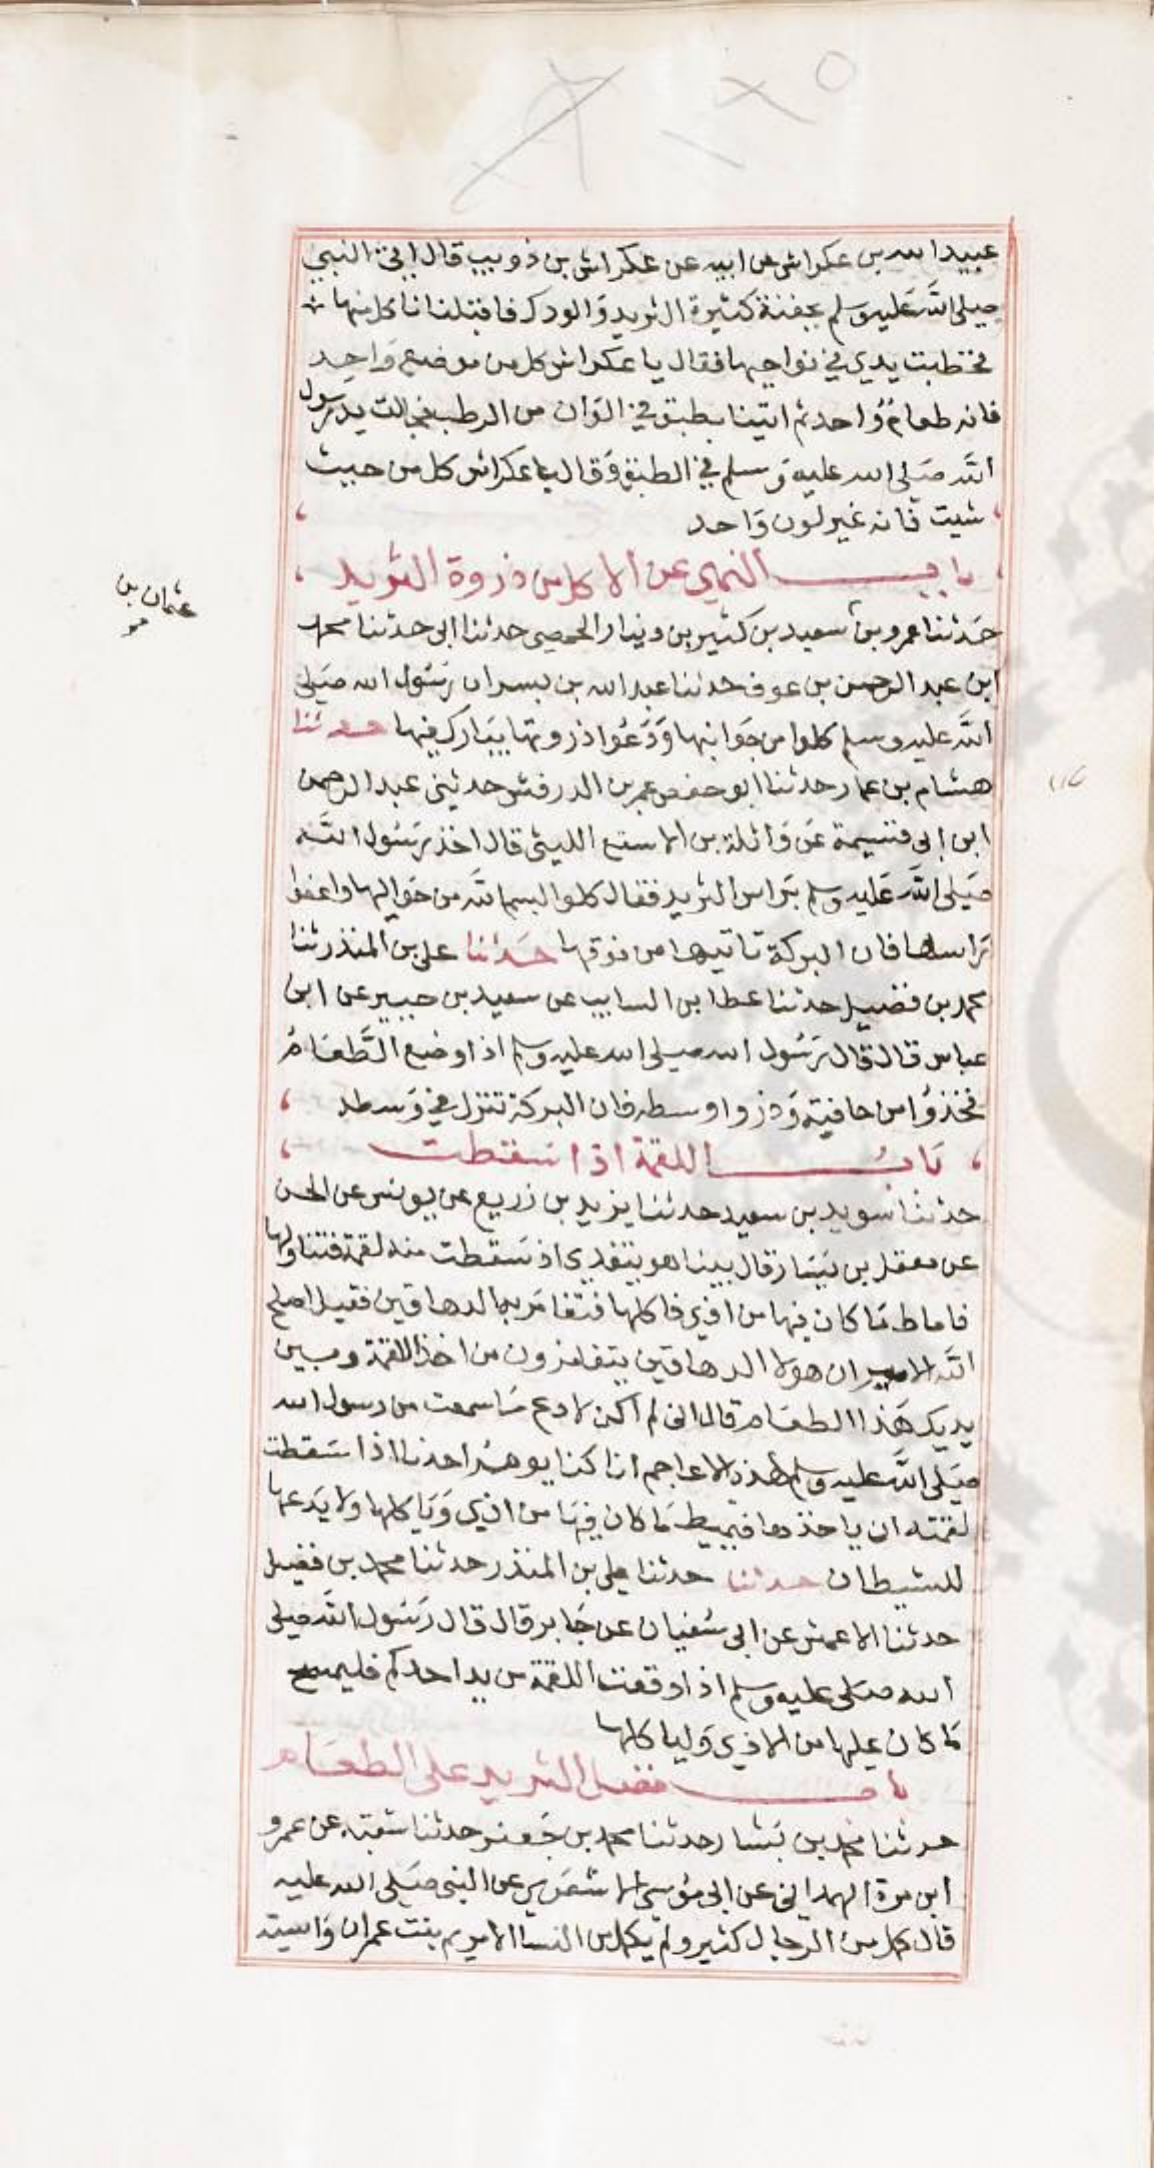 عبيد الله بن عكراش عن ابيه عن عكراش بن ذويب قال اتي النبي
صلى الله عليه وسلم بجفنة كثيرة الثريد والودك فاقبلنا ناكل منها
فخطبت يدي في نواحيها فقال يا عكراش كل من موضع واحد
فانه طعام واحد ثم اتينا بطبق فيه الوان من الرطب فجالت يد رسول
الله صلى الله عليه وسلم في الطبق وقال يا عكراش كل من حيث
شيت فانه غير لون واحد
باب النهي عن الاكل من ذروة الثريد
حدثنا عمرو بن سعيد بن كثير بن دينار الحمصي حدثنا ابي حدثنا محمد
عثمان بن
ابن عبد الرحمن بن عوف حدثنا عبد الله بن بسر ان رسول الله صلى
الله عليه وسلم كلوا من جوانبها ودعوا ذروتها يبارك فيها حدثنا
هشام بن عمار حدثنا ابو حفص عمر بن الدرفش حدثني عبد الرحمن
ابن ابي قسيمة عن واثلة بن الاسقع الليثي قال اخذ رسول الله
صلى الله عليه وسلم براس الثريد فقال كلوا بسم الله من حواليها واعفوا
راسها فان البركة تاتيها من فوقها حدثنا علي بن المنذر ثنا
محمد بن فضيل حدثنا عطا بن السايب عن سعيد بن جبير عن ابن
عباس قال قال رسول الله صلى الله عليه وسلم اذا وضع الطعام
فخذوا من حافيته وذروا وسطه فان البركة تنزل في وسطه
باب اللقمة اذا سقطت
حدثنا سويد بن سعيد حدثنا يزيد بن زريع عن يونس عن الحسن
عن معقل بن يسار قال بينا هو يتغدي اذ سقطت منه لقمة فتناولها
فاماط ما كان فيها من اذي فاكلها فتغامز به الدهاقين فقيل اصلح
الله الامير ان هولا الدهاقين يتغامزون من اخذ اللقمة وبين
يديك هذا الطعام قال اني لم اكن لادع ما سمعت من رسول الله
صلى الله عليه وسلم لهذه الاعاجم انا كنا يومر احدنا اذا سقطت
لقمته ان ياخذها فيميط ما كان فيها من اذي وياكلها ولا يدعها
للشيطان حدثنا حدثنا علي بن المنذر حدثنا محمد بن فضيل
حدثنا الاعمش عن ابي سفيان عن جابر قال قال رسول الله صلى
الله صلى عليه وسلم اذا وقعت اللقمة من يد احدكم فليمسح
ما كان عليها من الاذي ولياكلها
باب فضل الثريد على الطعام
حدثنا محمد بن بشار حدثنا محمد بن جعفر حدثنا شعبة عن عمرو
ابن مرة الهمداني عن ابي موسي الاشعري عن النبي صلى الله عليه
قال كمل من الرجال كثير ولم يكمل من النسا الا مريم بنت عمران واسية